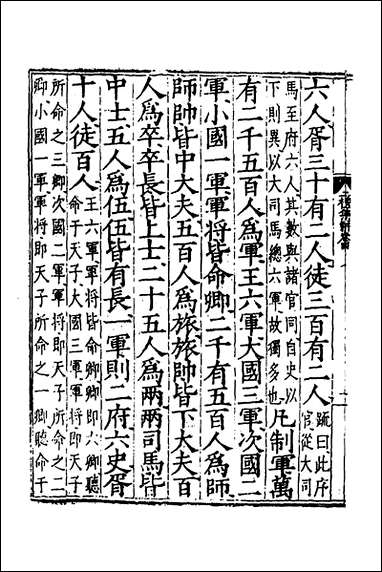 六人胥三十有二人徒三百有二人䟽曰此序官從大司
馬至府六人其數與諸官同自史以下則異以大司馬總六軍故獨多也凡制軍萬
有二千五百人為軍王六軍大國三軍次國二
軍小國一軍軍將皆命卿二千有五百人為師
師帥皆中大夫五百人為旅旅帥皆下大夫百
人為卒卒長皆上士二十五人為兩兩司馬皆
中士五人為伍伍皆有長一軍則二府六史胥
十人徒百人王六軍軍將皆命卿卿即六卿聽命于天子大國三軍軍將即天子
所命之三卿次國二軍軍將即天子所命之二卿小國一軍軍將即天子所命之一卿聽命于